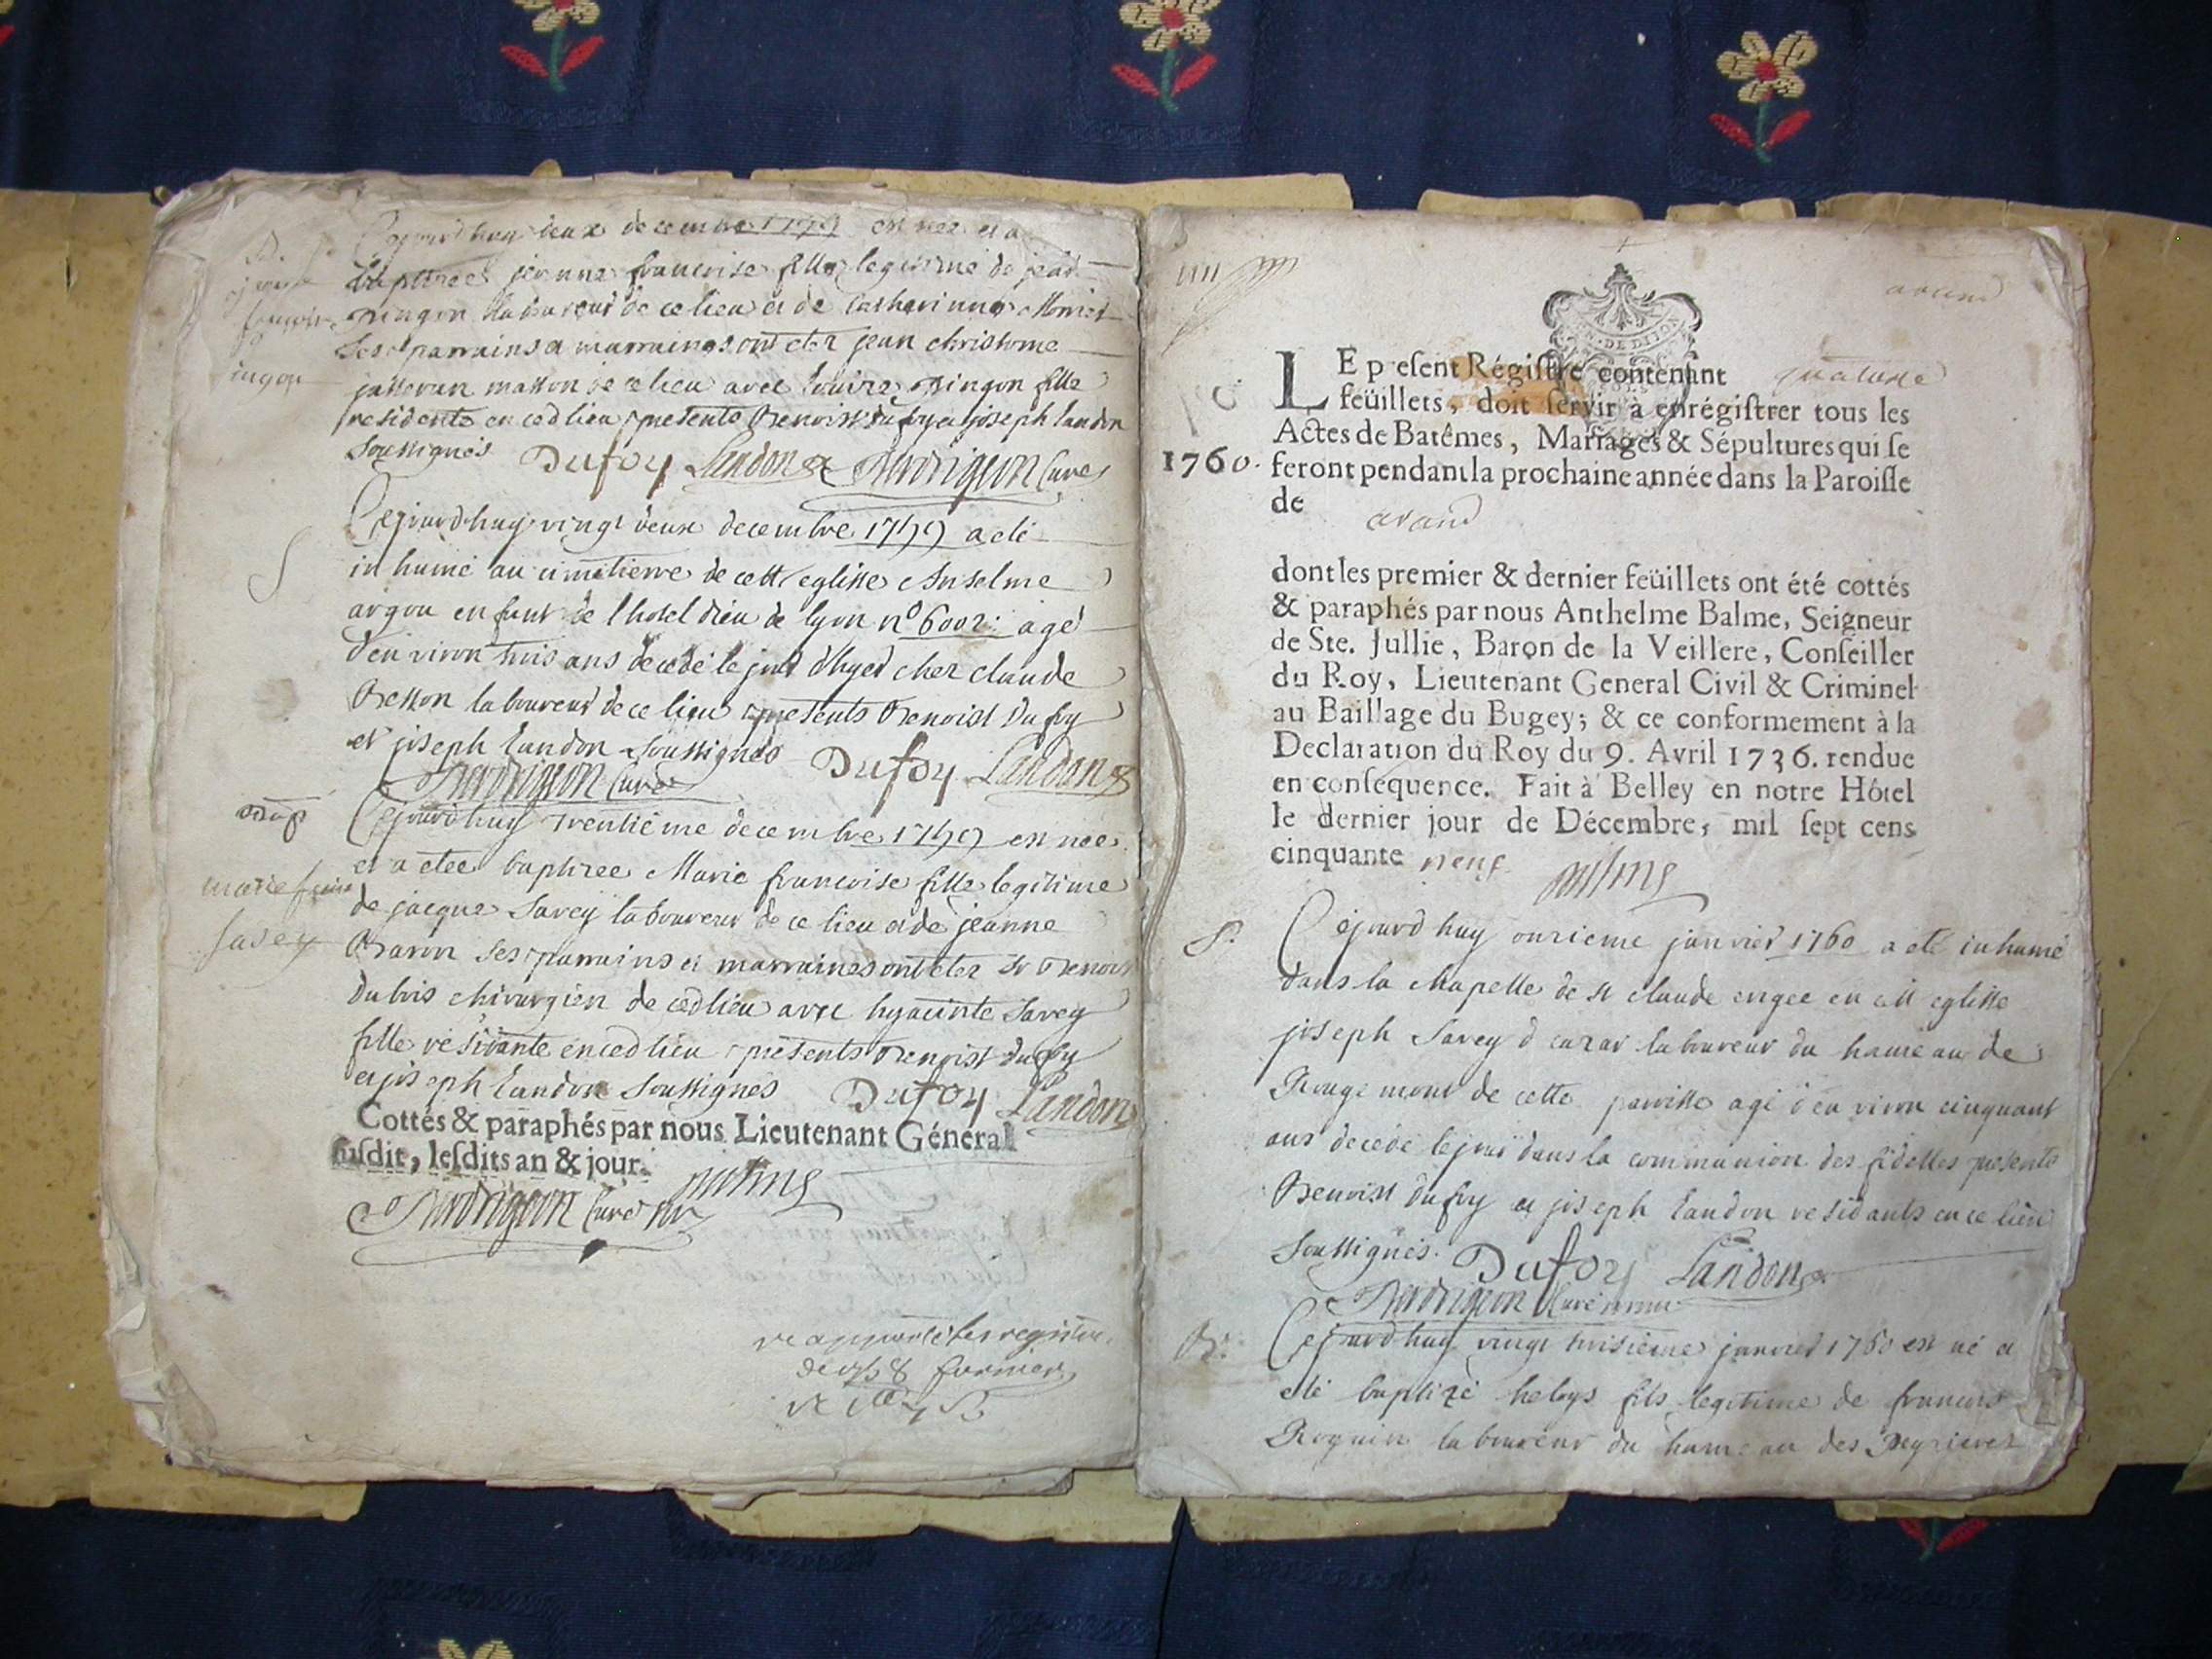 Cejourd'huy deux decembre 1759 est nee et a
baptizee jeanne francoise fille legitime de jean
laboureur de ce lieu et de catherinne
ses parrains et marraines ont etez jean christome
masson de ce lieu avec fille
residente en ced lieu presents Benoist dufoy et joseph landon
soussignés Dufoy Landon Curé
Cejourd huy vingt deux decembre 1759 a eté
S
in humé au cimetierre de cett eglisse Anselme
argou enfant de l hotel dieu de lyon n° 6002: agé
d'environ trois ans decedé le jour d'hyer chez claude
Besson laboureur de ce lieu presents Benoist Dufoy
et joseph landon soussignés Dufoy Landon
Curé
Bap
Cejourd huy trentième decembre 1759 est née
et a etee baptizee Marie francoise fille legitime
marie
de jacque Savey laboureur de ce lieu et de jeanne
savey
Baron ses parrains et marraines ont etez sr Benoist
Dubois chirurgien de ced lieu avec hyacinte Savey
fille residante en ced lieu presents Benoist Dufoy
et joseph landon soussignés Dufoy Landon
Cottés & paraphés par nous Lieutenant Général
susdit, lesdits an & jour.
Curé
registre
de 1758
arand
LE p esent Régistre contenant quatorze
feüillets, doit servir à enrégistrer tous les
Actes de Batêmes, Mariages & Sépultures qui se
1760. feront pendant la prochaine année dans la Paroisse
de arand
dont les premier & dernier feüillets ont été cottés
& paraphés par nous Anthelme Balme, Seigneur
de Ste. Jullie, Baron de la Veillere, Conseiller
du Roy, Lieutenant General Civil & Criminel
au Baillage du Bugey; & ce conformement à la
Declaration du Roy du 9. Avril 1736. rendue
en conséquence. Fait à Belley en notre Hôtel
le dernier jour de Décembre, mil sept cens
cinquante neuf
S. Cejourd huy onzieme janvier 1760 a eté inhumé
dans la chapelle de st claude erigee en cett eglisse
joseph Savey laboureur du hameau de
Rougemont de cette parroisse agé d'environ cinquant
ans decedé dans la communion des fidelles presents
Benoist dufoy et joseph landon residants en ce lieu
soussignés. Dufoy Landon
Curé
B. Cejourd huy vingt troisieme janvier 1760 est né et
eté baptizé fils legitime de francois
laboureur du hameau des